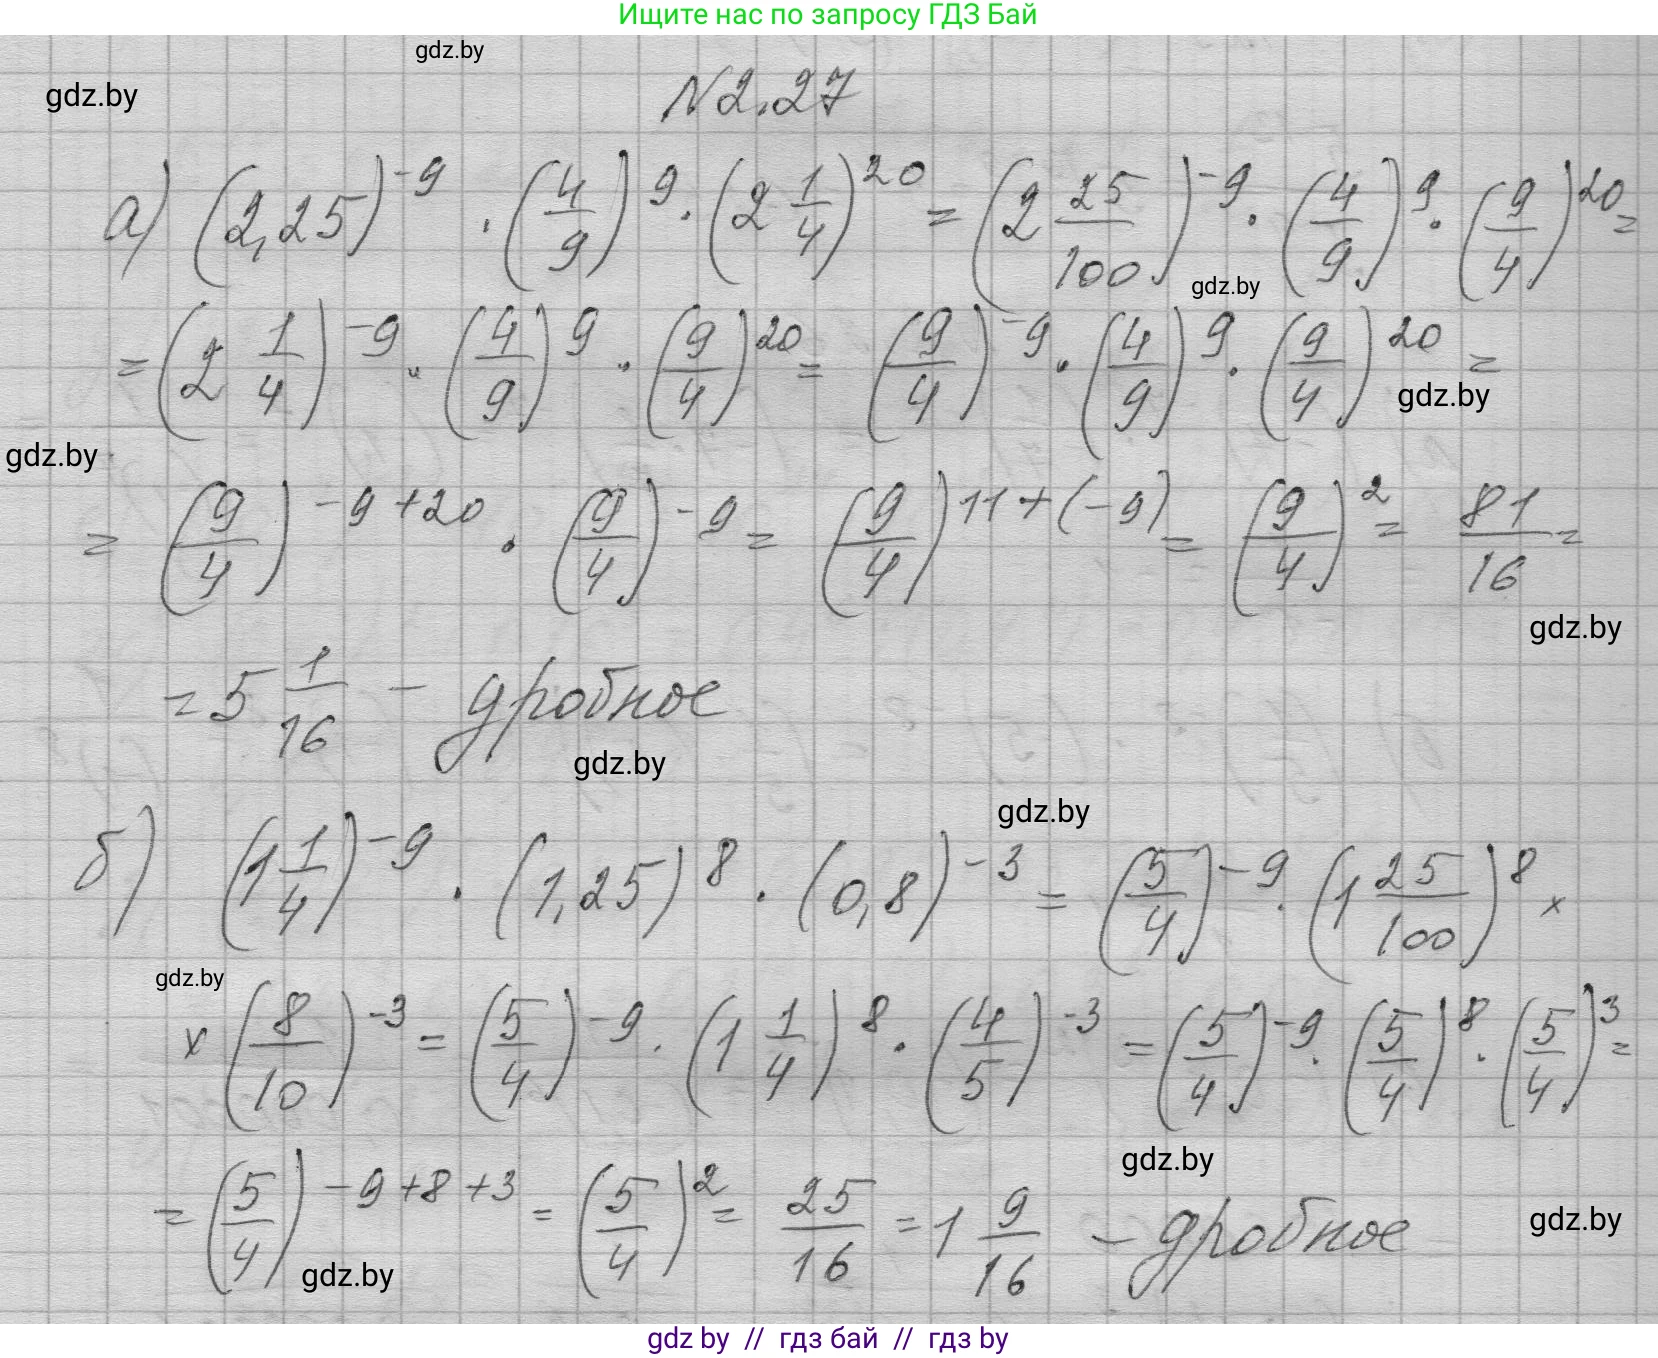 Ищите нас по запросу ГДЗ Бай
gdz.by
gdz.by
N2.27
а) (2,25)^-9 · (4/9)^9 · (2 1/4)^20 = (2 25/100)^-9 · (4/9)^9 · (9/4)^20 =
gdz.by
= (2 1/4)^-9 · (4/9)^9 · (9/4)^20 = (9/4)^-9 · (4/9)^9 · (9/4)^20 =
gdz.by
gdz.by
= (9/4)^-9+20 · (9/4)^-9 = (9/4)^11+(-9) = (9/4)^2 = 81/16 =
gdz.by
= 5 1/16 - дробное
gdz.by
gdz.by
б) (1 1/4)^-9 · (1,25)^8 · (0,8)^-3 = (5/4)^-9 · (1 25/100)^8 ×
gdz.by
× (8/10)^-3 = (5/4)^-9 · (1 1/4)^8 · (4/5)^-3 = (5/4)^-9 · (5/4)^8 · (5/4)^3 =
gdz.by
= (5/4)^-9+8+3 = (5/4)^2 = 25/16 = 1 9/16 - дробное
gdz.by
gdz.by
gdz by // гдз бай // гдз by